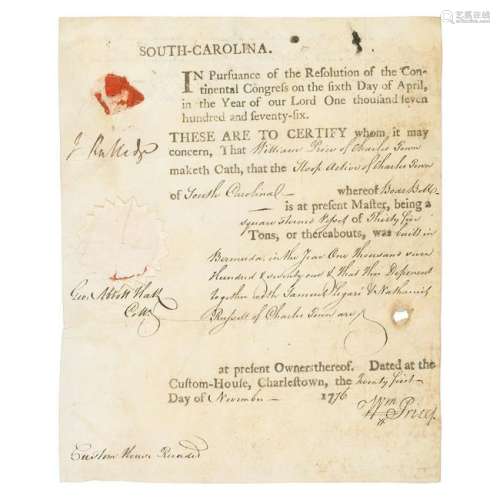 艺术易拍
SOUTH-CAROLINA.
IN Pursuance of the Resolution of the Con-
tinental Congress on the sixth Day of April,
in the Year of our Lord One thousand seven
hundred and seventy-six.
THESE ARE TO CERTIFY whom it may
concern, That William Price of Charles Town
maketh Oath, that the Sloop Active of Charles Town
of South Carolina whereof
is at present Master, being a
square Sterned Vessel of Thirty five
Tons, or thereabouts, was built in
Bermuda in the Year One Thousand seven
Hundred & seventy one & that this Deponent
together with Samuel Legare & Nathaniel
Russell of Charles Town are
at present Owners thereof. Dated at the
Custom-House, Charlestown, the Twenty first
Day of November 1776
Wm Price
J Rutledge
Geo Abbott Hall
Collr
Custom House